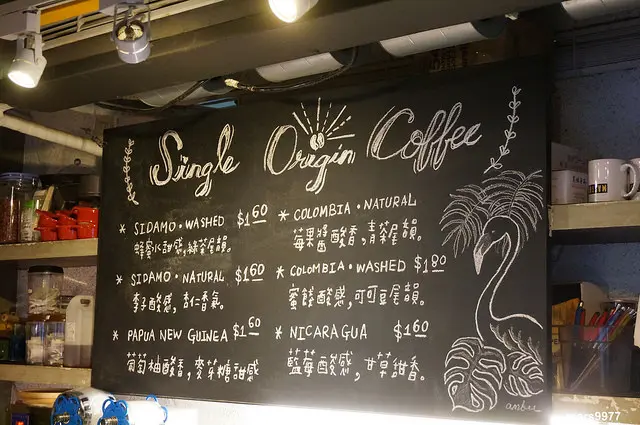 Single Origin Coffee
* SIDAMO · WASHED $1⁶⁰
蜂蜜水甜感,綠茶尾韻。
* SIDAMO · NATURAL $1⁶⁰
李子酸感,杏仁香氣。
* PAPUA NEW GUINEA $1⁶⁰
葡萄柚酸香,麥芽糖甜感
* COLOMBIA · NATURAL
莓果醬酸香,青茶尾韻。
* COLOMBIA · WASHED $1⁸⁰
蜜餞酸感,可可豆尾韻。
* NICARAGUA $1⁶⁰
藍莓酸感,甘草甜香。